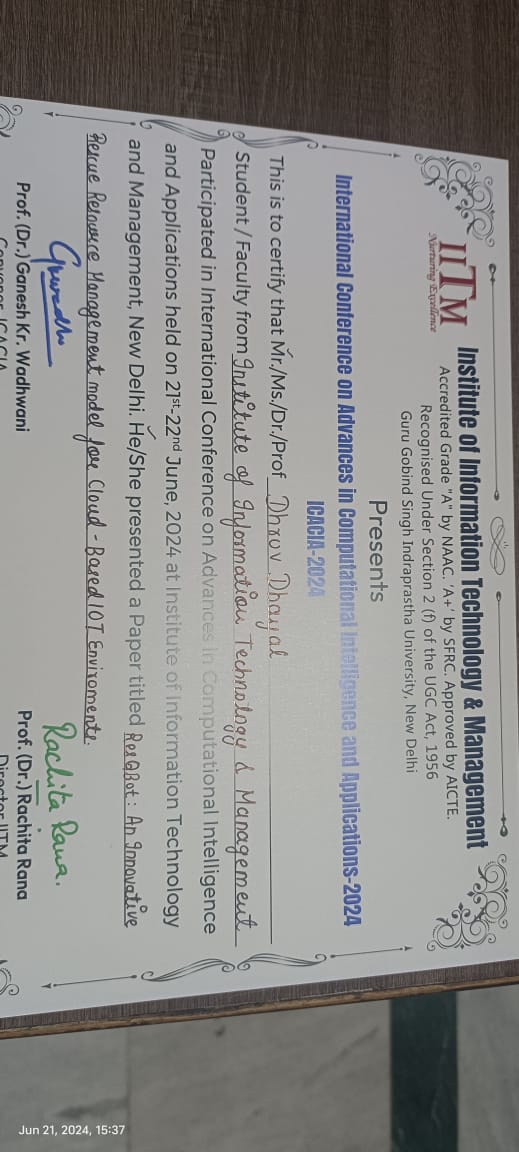 IITM
Nurturing Excellence
Institute of Information Technology & Management
Accredited Grade "A" by NAAC. 'A+' by SFRC. Approved by AICTE.
Recognised Under Section 2 (f) of the UGC Act, 1956
Guru Gobind Singh Indraprastha University, New Delhi
Presents
International Conference on Advances in Computational Intelligence and Applications-2024
ICACIA-2024
This is to certify that Mr./Ms./Dr./Prof Dhrov Dhayal
Student / Faculty from Institute of Information Technology & Management
Participated in International Conference on Advances in Computational Intelligence
and Applications held on 21st-22nd June, 2024 at Institute of Information Technology
and Management, New Delhi. He/She presented a Paper titled ResQBot: An Innovative
Rescue Resource Management model for Cloud-Based IOT Enviroments.
Rachita Rana.
Prof. (Dr.) Ganesh Kr. Wadhwani
Prof. (Dr.) Rachita Rana
Convenor ICACIA
Director IITM
Jun 21, 2024, 15:37